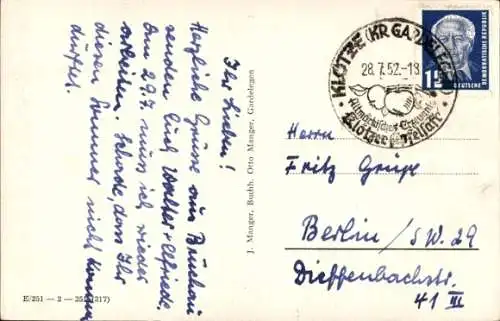 Ihr Lieben!
Herzliche Grüsse aus Brüchau
senden Euch Walter + Elfriede.
Am 29.7. muss ich wieder
arbeiten. Schade, dass Ihr
diesen Sommer nicht kommen
dürft.
J. Manger, Buchh. Otto Manger, Gardelegen
E/251 — 2 — 252 (317)
KLÖTZE (KR. GARDELEGEN)
28.7.52.-18
Altmärkisches Erzeugnis
Klötzer Obstsäfte
DEUTSCHE DEMOKRATISCHE REPUBLIK
Herrn
Fritz Grupe
Berlin / SW. 29
Dieffenbachstr.
41 III